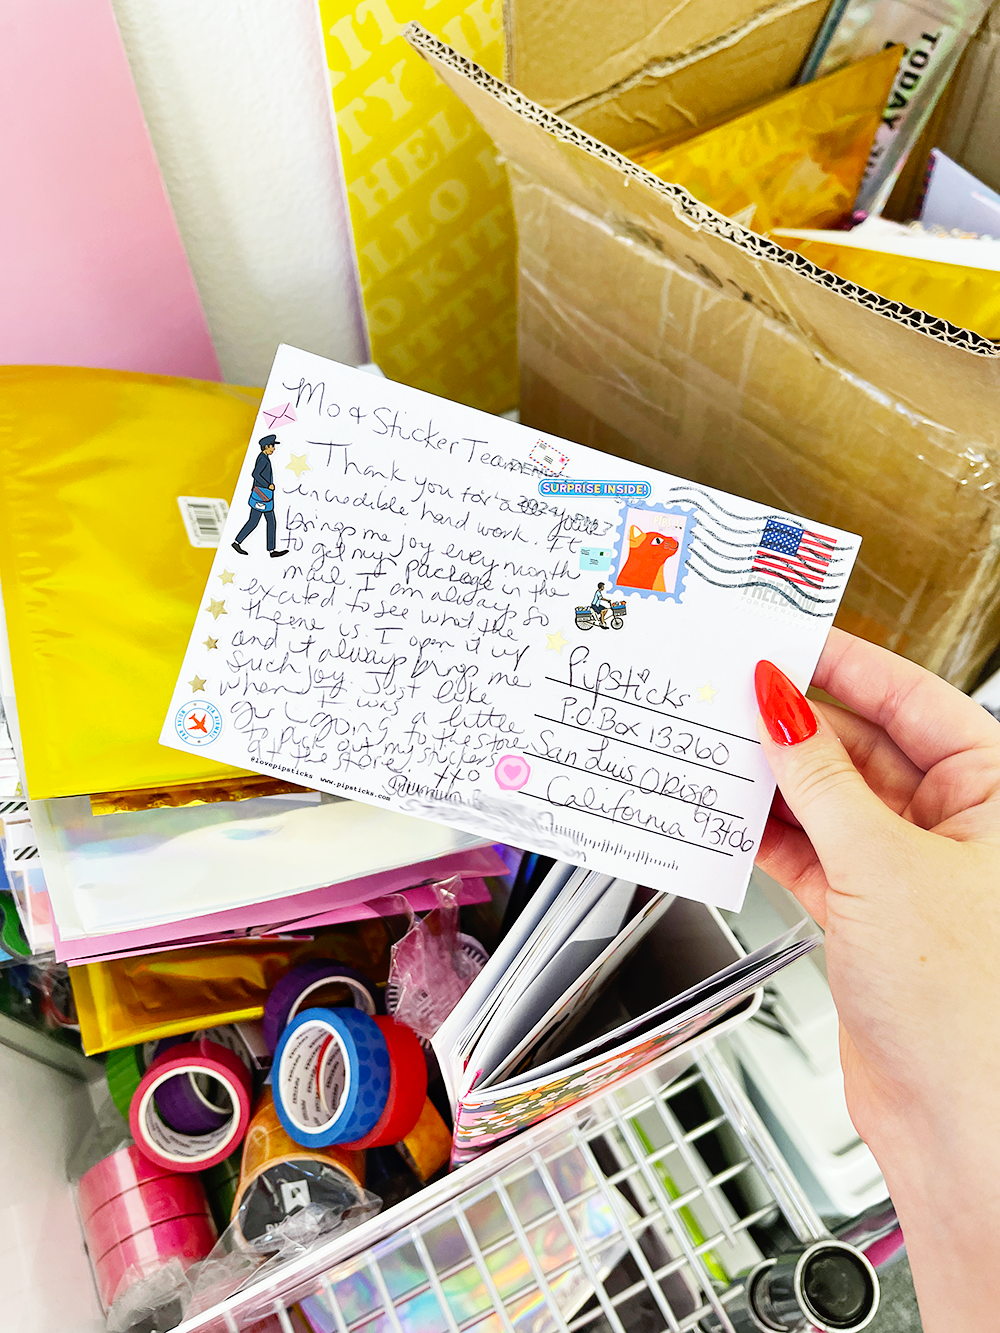 Mo & Sticker Team
Thank you for
incredible hard work. It
brings me joy every month
to get my package in the
mail. I am always so
excited to see what the
theme is. I open it up
and it always brings me
such joy. Just like
when I was a little
girl going to the store
to pick out my stickers
at the store,
XXO
@lovepipsticks www.pipsticks.com
SURPRISE INSIDE!
FREEDOM
FOREVER/USA
PAR AVION VIA AIRMAIL
Pipsticks
P.O. Box 13260
San Luis Obispo
California 93406
HELLO KITTY
HELLO KITTY
TODAY